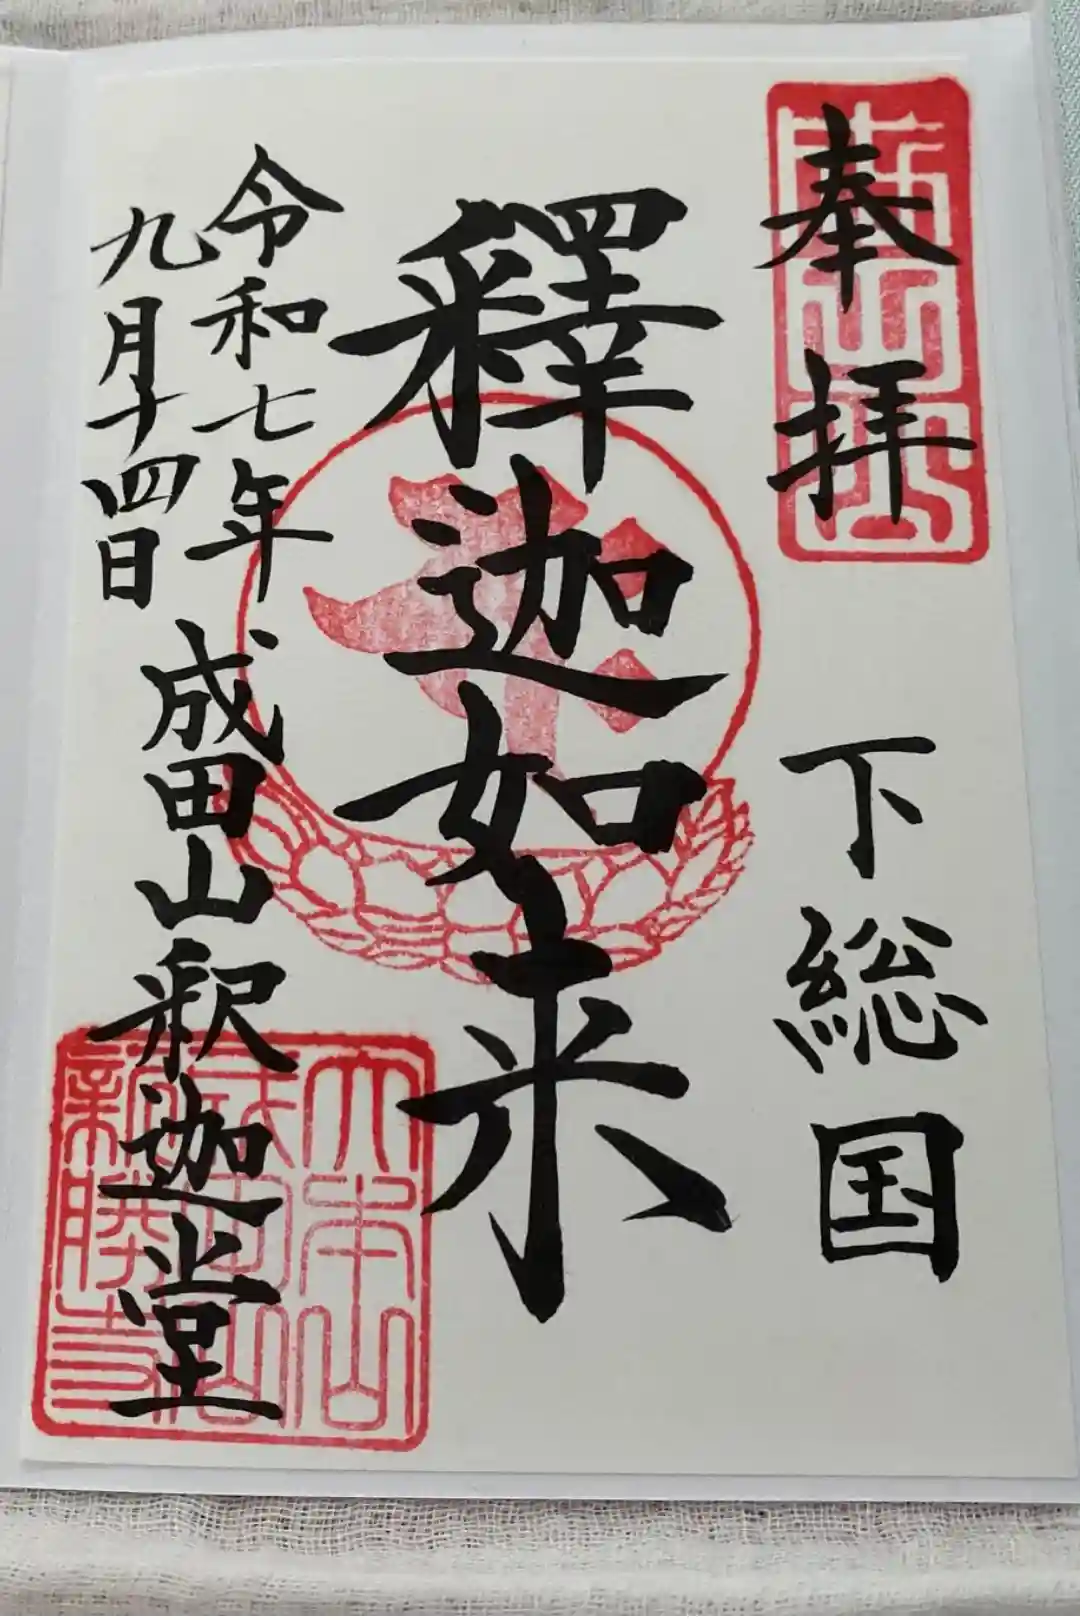 奉拝
下総国
釋迦如来
令和七年
九月十四日
成田山釈迦堂
大本山
成田山
新勝寺